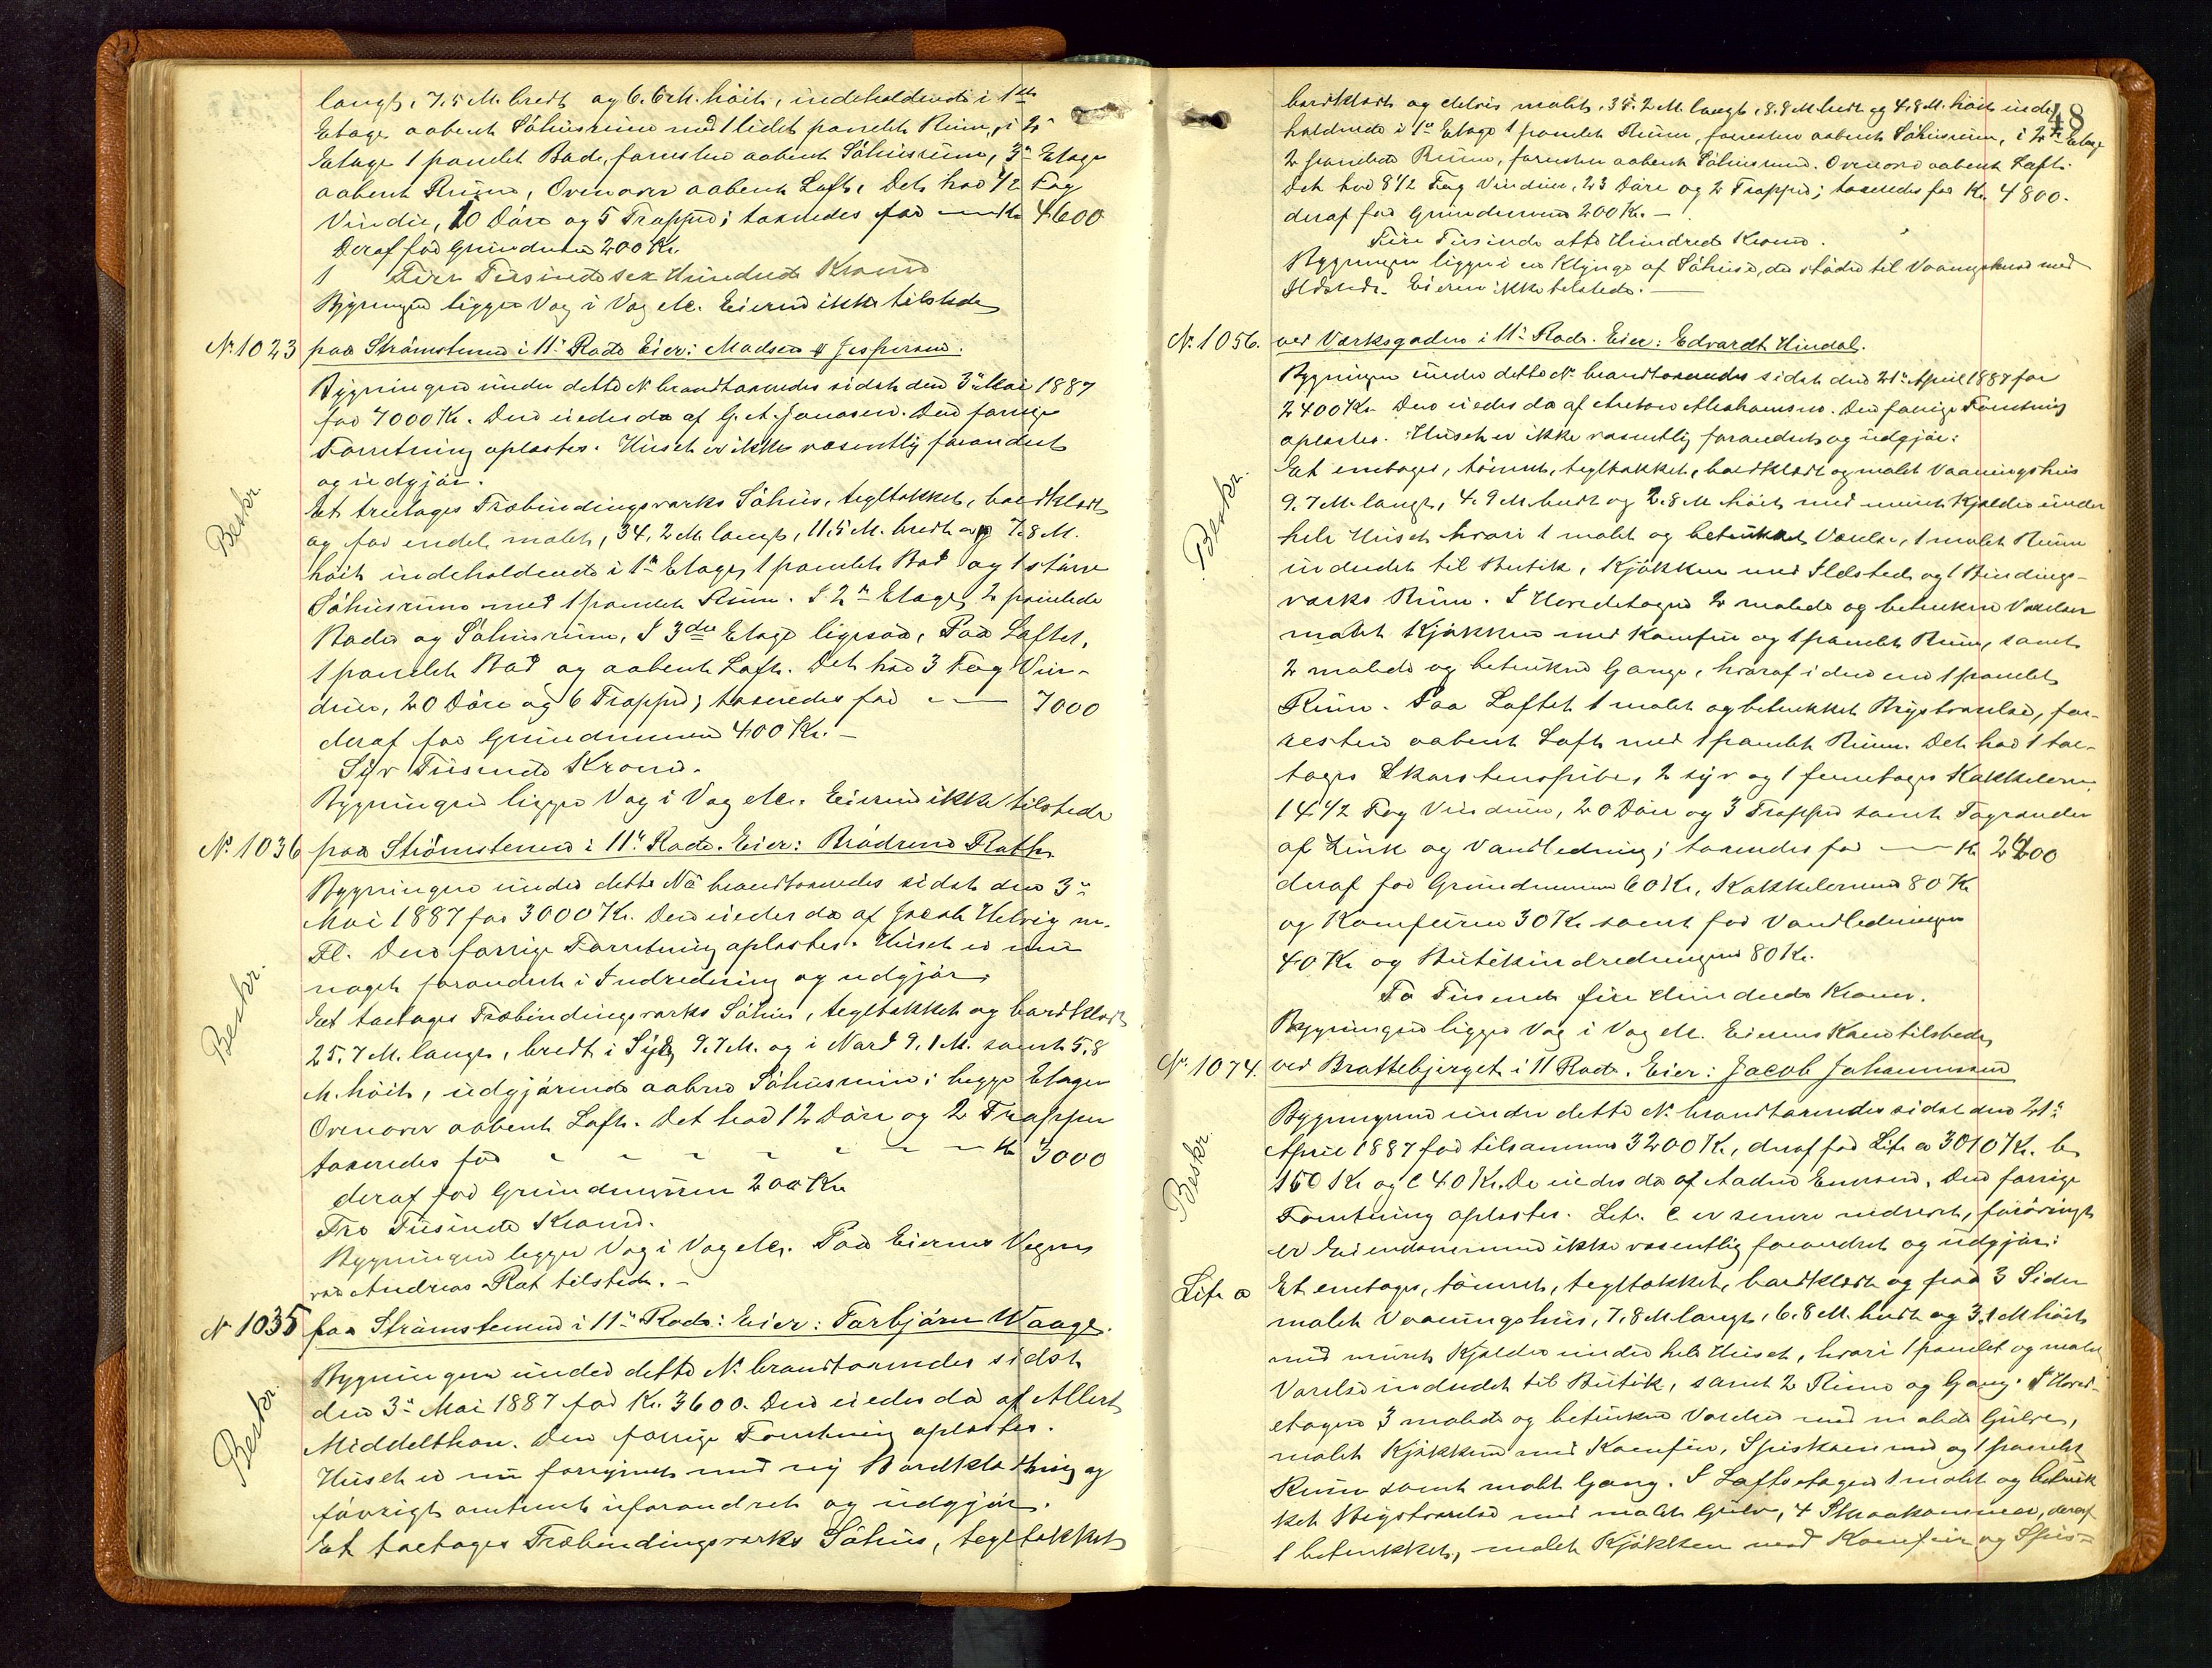 langt, 7.5 M. bredt og 6.6 M. höit, indeholdende i 1ste
Etage aabent Söhusrum med 1 lidet panelet Rum, i 2n
Etage 1 panelet Bod, forresten aabent Söhusrum, 3n Etage
aabent Rum, Ovenover aabent Loft, Det har 1/2 Fag
Vindu, 10 Döre og 5 Trapper; taxeredes for — Kr 4600
Deraf for Grundmuren 200 Kr
Fire Tusinde sex Hundrede Kroner
Bygningen ligger Væg i Væg etc. Eieren ikke tilstede
N. 1023 paa Strömstenen i 11n Rode Eier: Madsen & Jespersen.
Bygningen under dette N. brandtaxeredes sidst den 3n Mai 1887
for 7000 Kr. Den eiedes da af G. A. Jonasen. Den forrige
Forretning oplæstes. Huset er ikke væsentlig forandret
og udgjör.
Beskr.
Et treetages Træbindingsverks Söhus, tegltækket, bordklædt
og for endel malet, 34,2 M. langt, 11,5 M. bredt og 7.8 M.
höit indeholdende i 1n Etage, 1 panelet Bod og 1 större
Söhusrum med 1 panelet Rum. I 2n Etage 2 panelede
Boder og Söhusrum, I 3die Etage ligesaa, Paa Loftet,
1 panelet Bod og aabent Loft. Det har 3 Fag Vin-
duer, 20 Döre og 6 Trapper; taxeredes for — 7000
deraf for Grundmuren 400 Kr. —
Syv Tusinde Kroner.
Bygningen ligger Væg i Væg etc. Eieren ikke tilstede
N. 1036 paa Strömstenen i 11n Rode. Eier: Brödrene Rath.
Bygningen under dette No brandtaxeredes sidst den 3n
Mai 1887 for 3000 Kr. Den eiedes da af Jacob Helvig m.
Fl. Den forrige Forretning oplæstes. Huset er nu
noget forandret i Indredning og udgjör
Beskr.
Et toetages Træbindingsverks Söhus, tegltækket og bordklædt
25.7 M. langt, bredt i Syd 9.7 M. og i Nord 9.1 M. samt 5.8
M. höit, udgjörende aabne Söhusrum i begge Etager
Ovenover aabent Loft. Det har 12 Döre og 2 Trapper
taxeredes for — Kr 3000
deraf for Grundmuren 200 Kr
Tre Tusinde Kroner.
Bygningen ligger Væg i Væg etc. Paa Eiernes Vegne
var Andreas Rat tilstede. —
N 1035 paa Strömstenen i 11n Rode: Eier: Torbjörn Waage.
Bygningen under dette N. brandtaxeredes sidst
den 3n Mai 1887 for Kr. 3600. Den eiedes da af Allert
Middelthon. Den forrige Forretning oplæstes.
Beskr.
Huset er nu fornyet med ny Bordklædning og
forövrigt omtrent uforandret og udgjör.
Et toetages Træbindingsverks Söhus, tegltækket
48
bordklædt og delvis malet, 38.2 M. langt, 8.8 M. bredt og 4.8 M. höit inde-
holdende i 1n Etage 1 panelet Rum, forresten aabent Söhusrum, i 2n Etage
2 panelede Rum, forresten aabent Söhusrum. Ovenover aabent Loft.
Det har 8 1/2 Fag Vinduer, 23 Döre og 2 Trapper; taxeredes for Kr. 4800.
deraf for Grundmuren 200 Kr. —
Fire Tusinde otte Hundrede Kroner.
Bygningen ligger i en Klynge af Söhuse, der stöder til Vaaningshuse med
Ildsteder. Eieren ikke tilstede. —
N. 1056. ved Værksgaden i 11n Rode. Eier: Edvardt Hindal.
Bygningen under dette N. brandtaxeredes sidst den 21n April 1887 for
2400 Kr. Den eiedes da af Anton Abrahamsen. Den forrige Forretning
oplæstes. Huset er ikke væsentlig forandret og udgjör:
Beskr.
Et enetages, tömret, tegltækket, bordklædt og malet Vaaningshus
9.7 M. langt, 4.9 M. bredt og 2.8 M. höit med muret Kjælder under
hele Huset hvori 1 malet og betrukket Værelse, 1 malet Rum
indredet til Butik, Kjökken med Ildsted og 1 Bindings-
værks Rum. I Hovedetagen 2 malede og betrukne Værelser
malet Kjökken med Komfur og 1 panelet Rum, samt
2 malede og betrukne Gange, hvoraf i den ene 1 panelet
Rum. Paa Loftet 1 malet og betrukket Kvistværelse, for-
resten aabent Loft med 1 panelet Rum. Det har 1 toe-
tages Skorstenspibe, 2 syv og 1 femetages Kakkelovn,
14 1/2 Fag Vinduer, 20 Döre og 3 Trapper samt Tagrender
af Zink og Vandledning; taxeredes for — Kr 2400
deraf for Grundmuren 60 Kr, Kakkelovnene 80 Kr
og Komfuren 30 Kr samt for Vandledningen
40 Kr og Butikindredningen 80 Kr.
To Tusinde fire Hundrede Kroner.
Bygningen ligger Væg i Væg etc. Eierens Kone tilstede
N. 1074. ved Brattebjerget i 11 Rode. Eier: Jacob Johannesen
Bygningerne under dette N. brandtaxeredes sidst den 21n
April 1887 for tilsammen 3200 Kr, deraf for Litr a 3010 Kr. b
150 Kr og c 40 Kr. De eiedes da af Aadne Enersen. Den forrige
Beskr.
Forretning oplæstes. Litr. c er senere nedrevet, forövrigt
er Eiendommen ikke væsentlig forandret og udgjör:
Litr a Et enetages, tömret, tegltækket, bordklædt og paa 3 Sider
malet Vaaningshus, 7,8 M langt, 6.8 M. bredt og 3.1 M höit
med muret Kjælder under hele Huset, hvori 1 panelet og malet
Værelse indredet til Butik, samt 2 Rum og Gang. I Hoved-
etagen 3 malede og betrukne Værelser med malede Gulve,
malet Kjökken med Komfur, Spiskammer og 1 panelet
Rum samt malt Gang. I Loftsetagen 1 malet og betruk
ket Kvistværelse med malet Gulv, 4 Skraakammere, deraf
1 betrukket, malet Kjökken med Komfur og Spis-